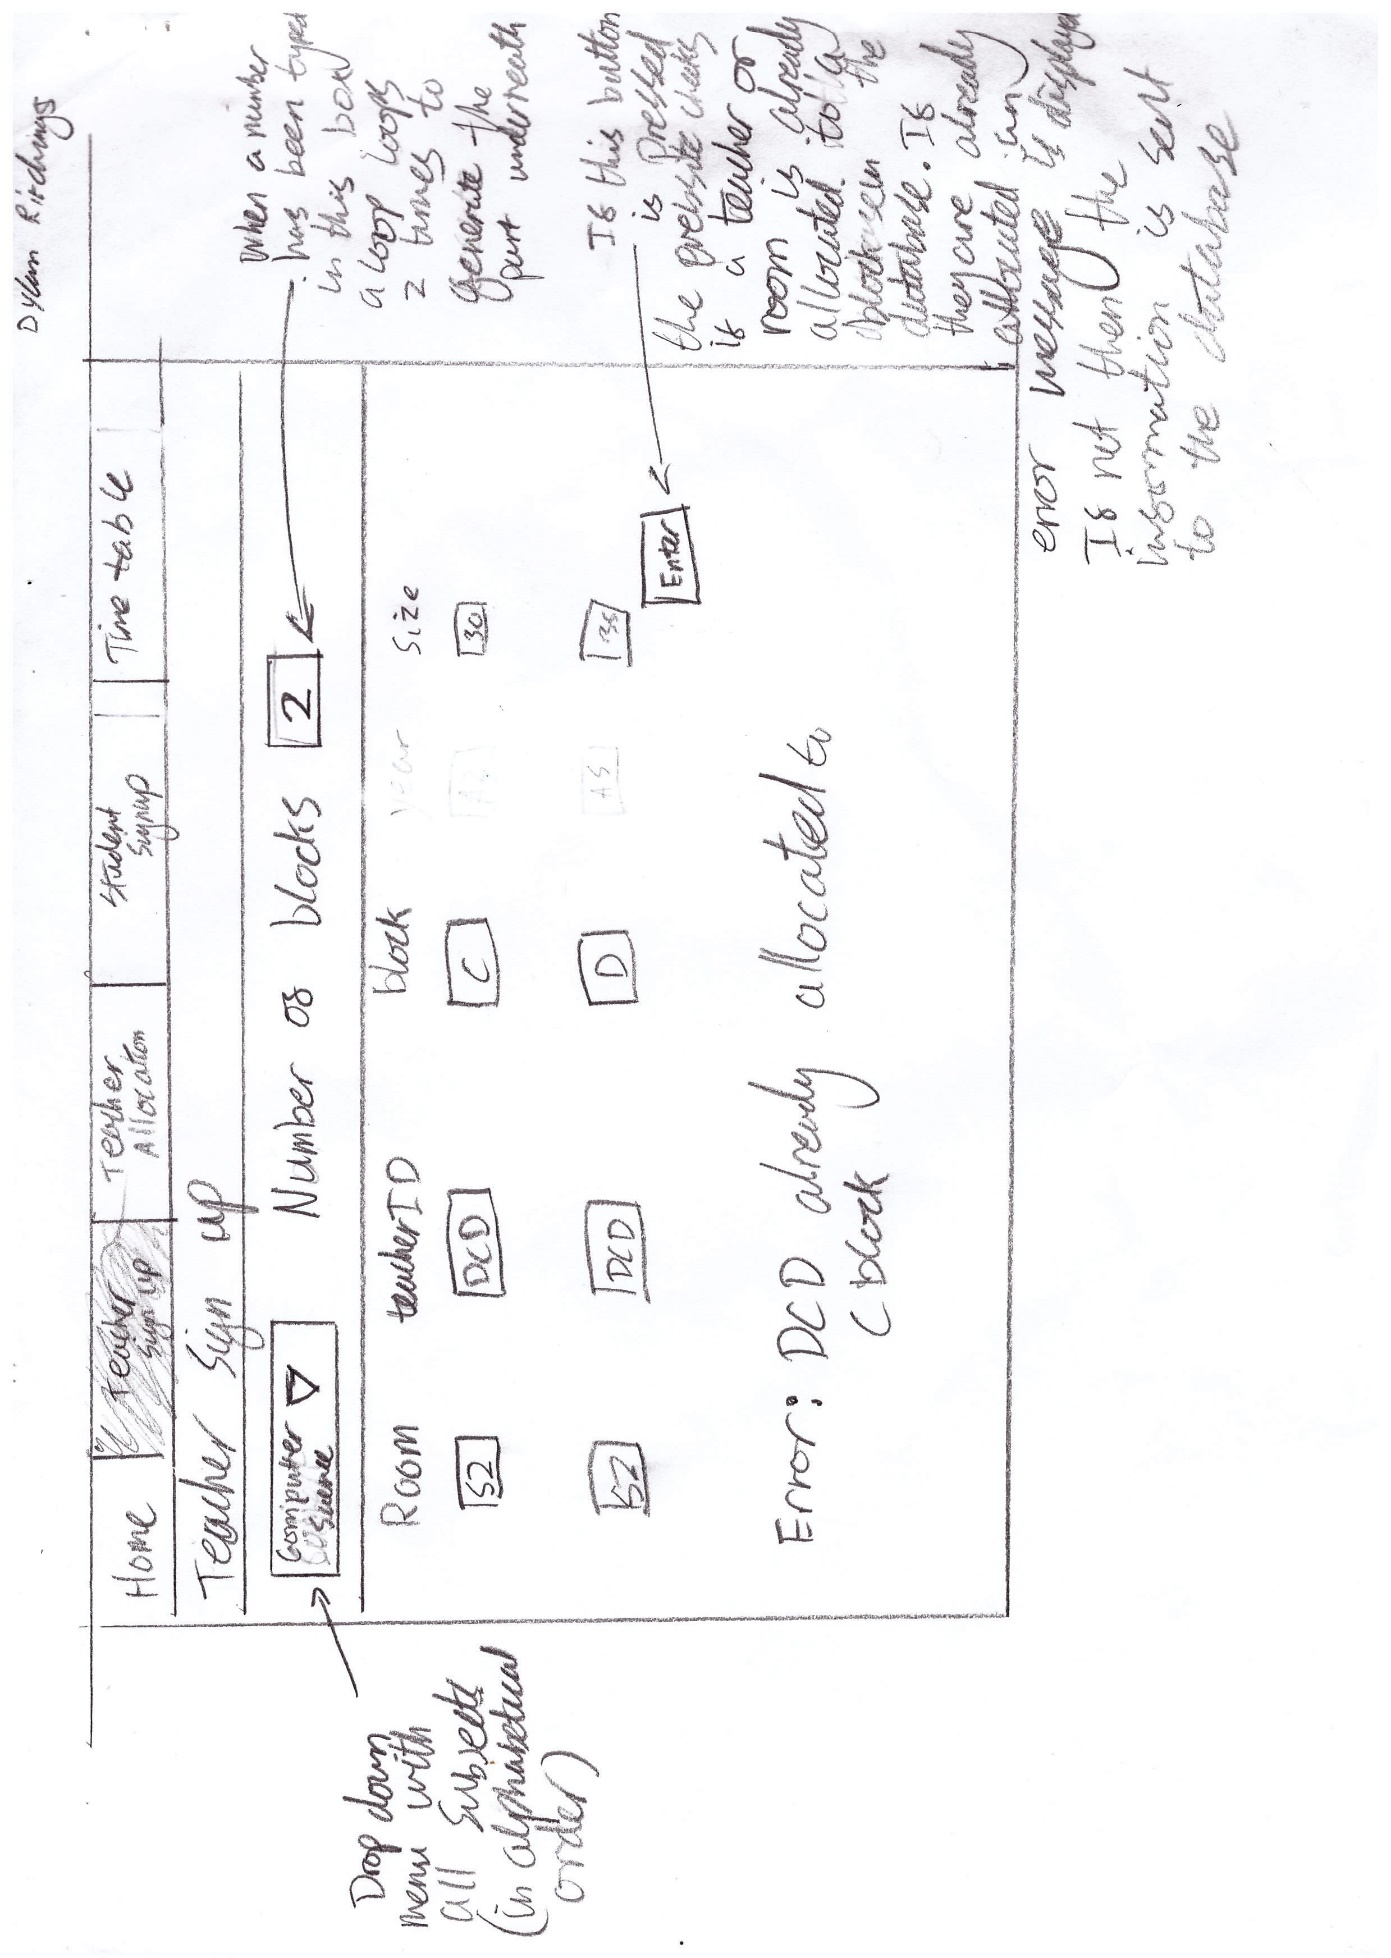 Dylan Ritchings
Home
Teacher
Sign up
Teacher
Allocation
Student
Signup
Time table
Teacher Sign up
Computer
Science
Number of blocks 2
Room teacherID block year Size
S2 DCD C AS 30
S2 DCD D AS 35
Enter
Error: DCD already allocated to
C block
Drop down
menu with
all subjects
(in alphabetical
order)
When a number
has been typed
in this box
a loop loops
2 times to
generate the
part underneath
If this button
is Pressed
the website checks
if a teacher or
room is already
allocated to a
block in the
database. If
they are already
allocated an
error message is displayed
If not then the
information is sent
to the database